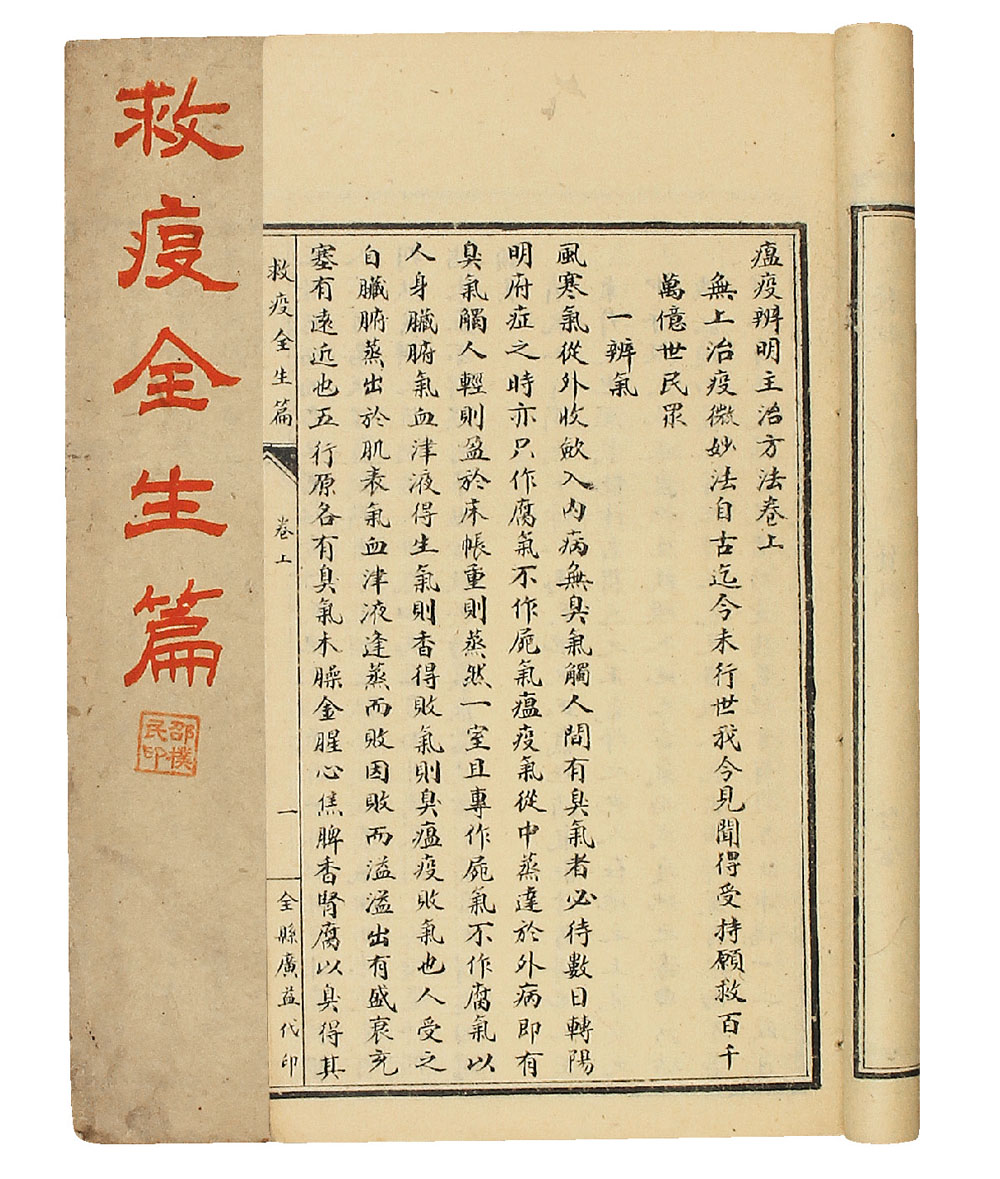 瘟疫辨明主治方法卷上
無上治疫微妙法自古迄今未行世我今見聞得受持願救百千
萬億世民眾
一辨氣
風寒氣從外收斂入內病無臭氣觸人間有臭氣者必待數日轉陽
明府症之時亦只作腐氣不作屍氣瘟疫氣從中蒸達於外病即有
臭氣觸人輕則盈於床帳重則蒸然一室且專作屍氣不作腐氣以
人身臟腑氣血津液得生氣則香得敗氣則臭瘟疫敗氣也人受之
自臟腑蒸出於肌表氣血津液逢蒸而敗因敗而溢溢出有盛衰充
塞有遠近也五行原各有臭氣木臊金腥心焦脾香腎腐以臭得其
救疫全生篇
卷上
一
全縣廣益代印
救疫全生篇
邵樸
民印